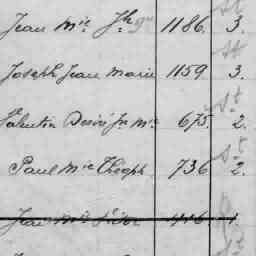 Jean Mie Jh 1186. 3.
st
Joseph Jean Marie 1159 3.
st
Valentin Désiré Jn Mie 675. 2.
st
Paul Mie Théoph 736 2.
Jean Mie 1.
st